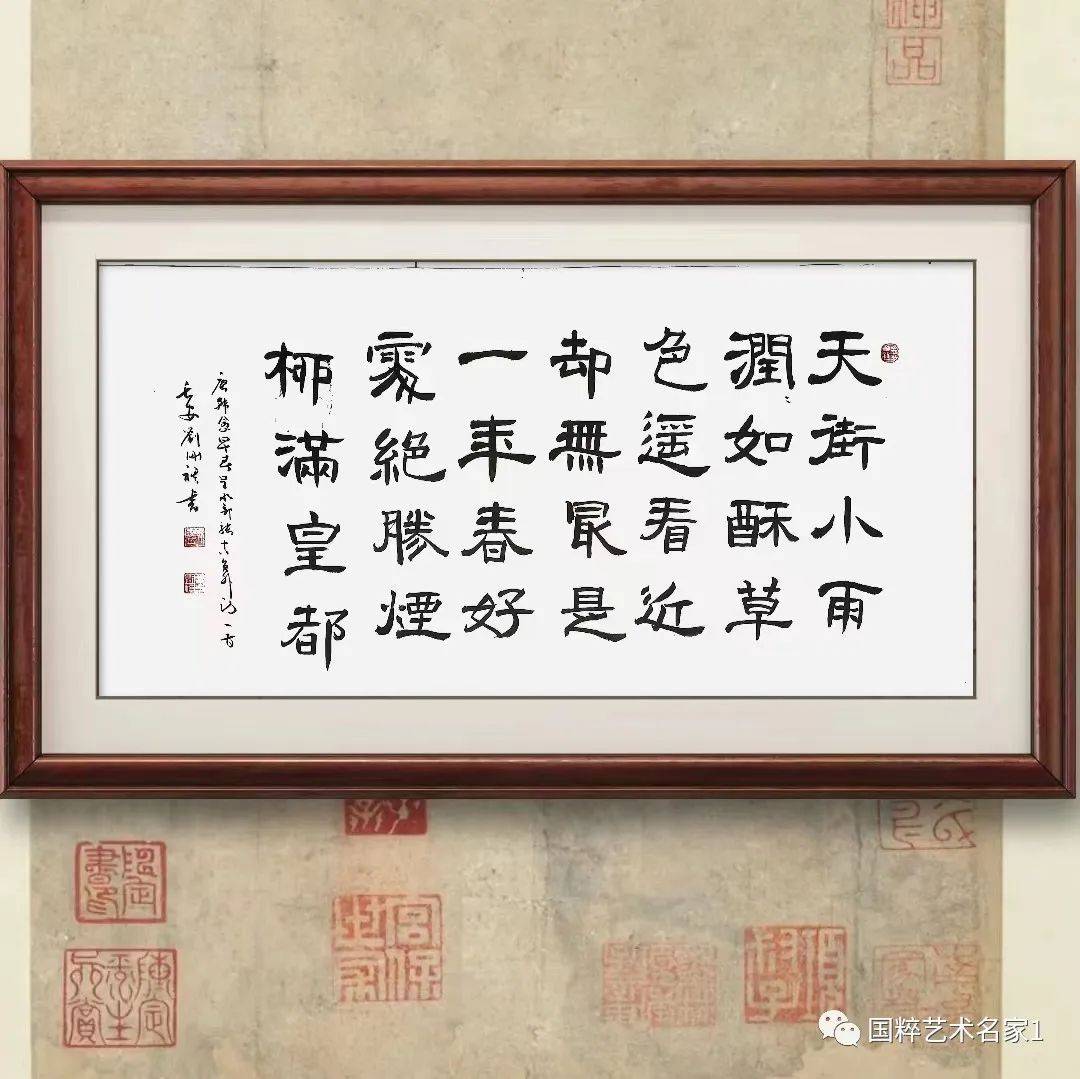 神品
天街小雨
潤如酥草
色遥看近
却無最是
一年春好
處絶勝煙
柳滿皇都
唐韩愈早春呈水部張十八員外诗一首
長安劉書
宮保世家
国粹艺术名家1